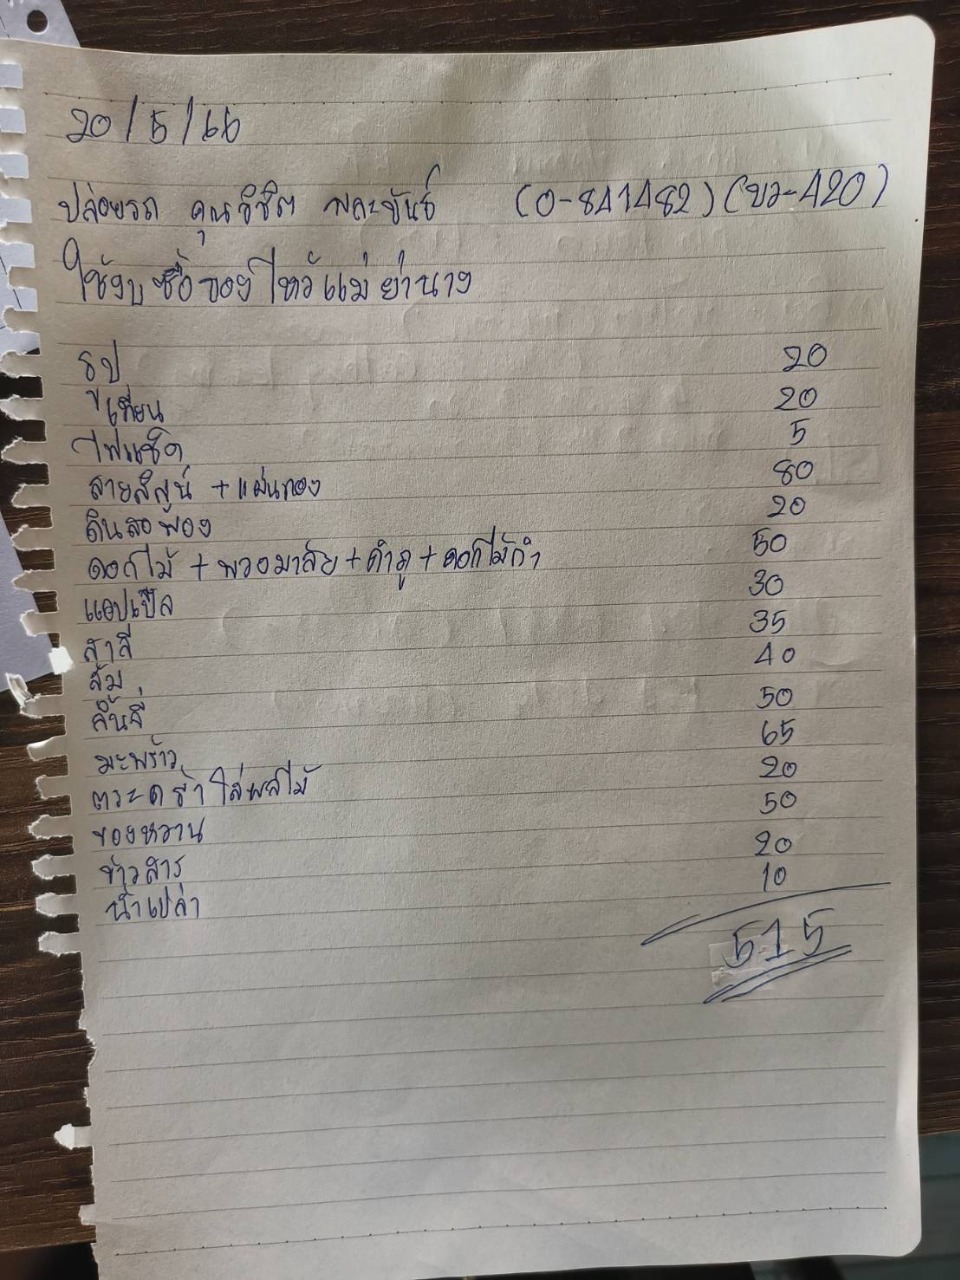 20/5/66
ปล่อยรถ คุณวิชิต พละขันธ์ (0-841482) (ขว-420)
ใช้งบซื้อของไหว้แม่ย่านาง
ธูป 20
เทียน 20
ไฟแช็ค 5
สายสิญน์ + แผ่นทอง 80
ดินสอพอง 20
ดอกไม้ + พวงมาลัย + + ดอกไม้กำ 50
แอปเปิ้ล 30
สาลี่ 35
ส้ม 40
ลิ้นจี่ 50
มะพร้าว 65
ตระกร้าใส่ผลไม้ 20
ของหวาน 50
ข้าวสาร 20
น้ำเปล่า 10
515